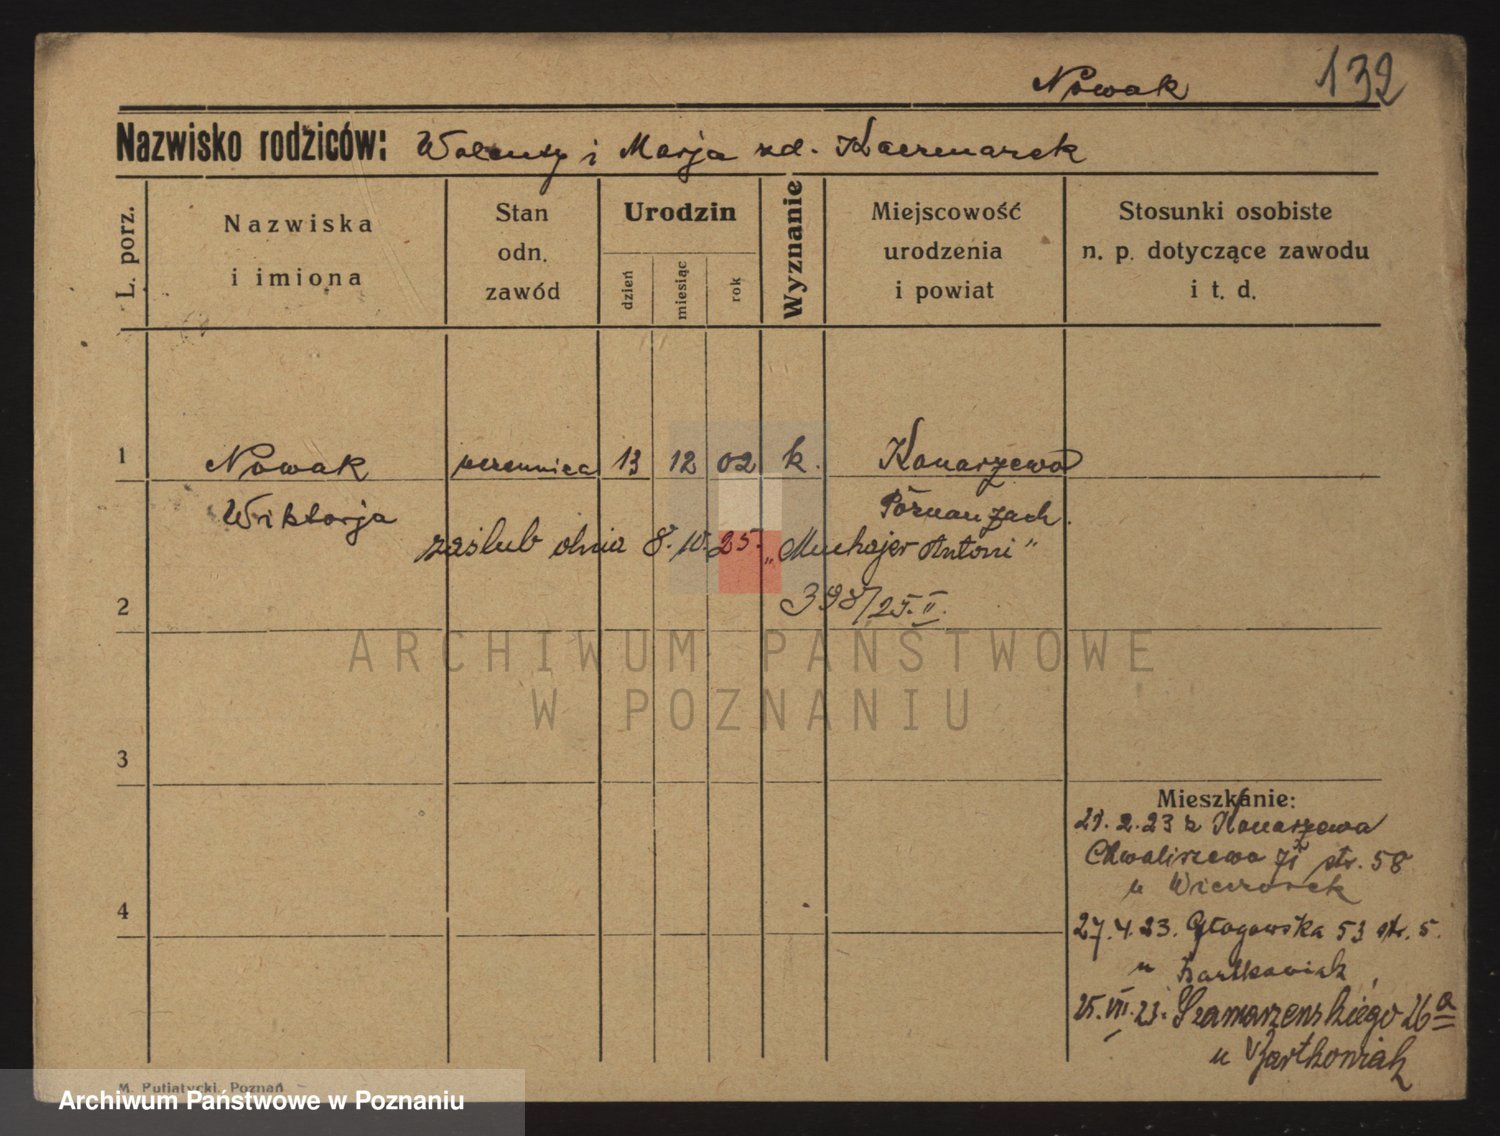 Nowak
132
Nazwisko rodziców: Walenty i Marja zd. Kaczmarek
L. porz.
Nazwiska i imiona
Stan odn. zawód
Urodzin
dzień
miesiąc
rok
Wyznanie
Miejscowość urodzenia i powiat
Stosunki osobiste n. p. dotyczące zawodu i t. d.
1 Nowak uczennica 13 12 02 k. Konarzewo
Wiktorja Poznań zach.
zaślub dnia 8.10.25. „Muchajer Antoni"
2 398/25. II.
ARCHIWUM PAŃSTWOWE
W POZNANIU
3
Mieszkanie:
21.2.23 z Konarzewa
Chwaliszewo 71 str. 58
u Wieczorek
4
27.4.23. Głogowska 53 str. 5.
u Bartkowiak
25.VII.23. Szamarzenskiego 26a
u Bartkowiak
M. Putiatycki, Poznań
Archiwum Państwowe w Poznaniu